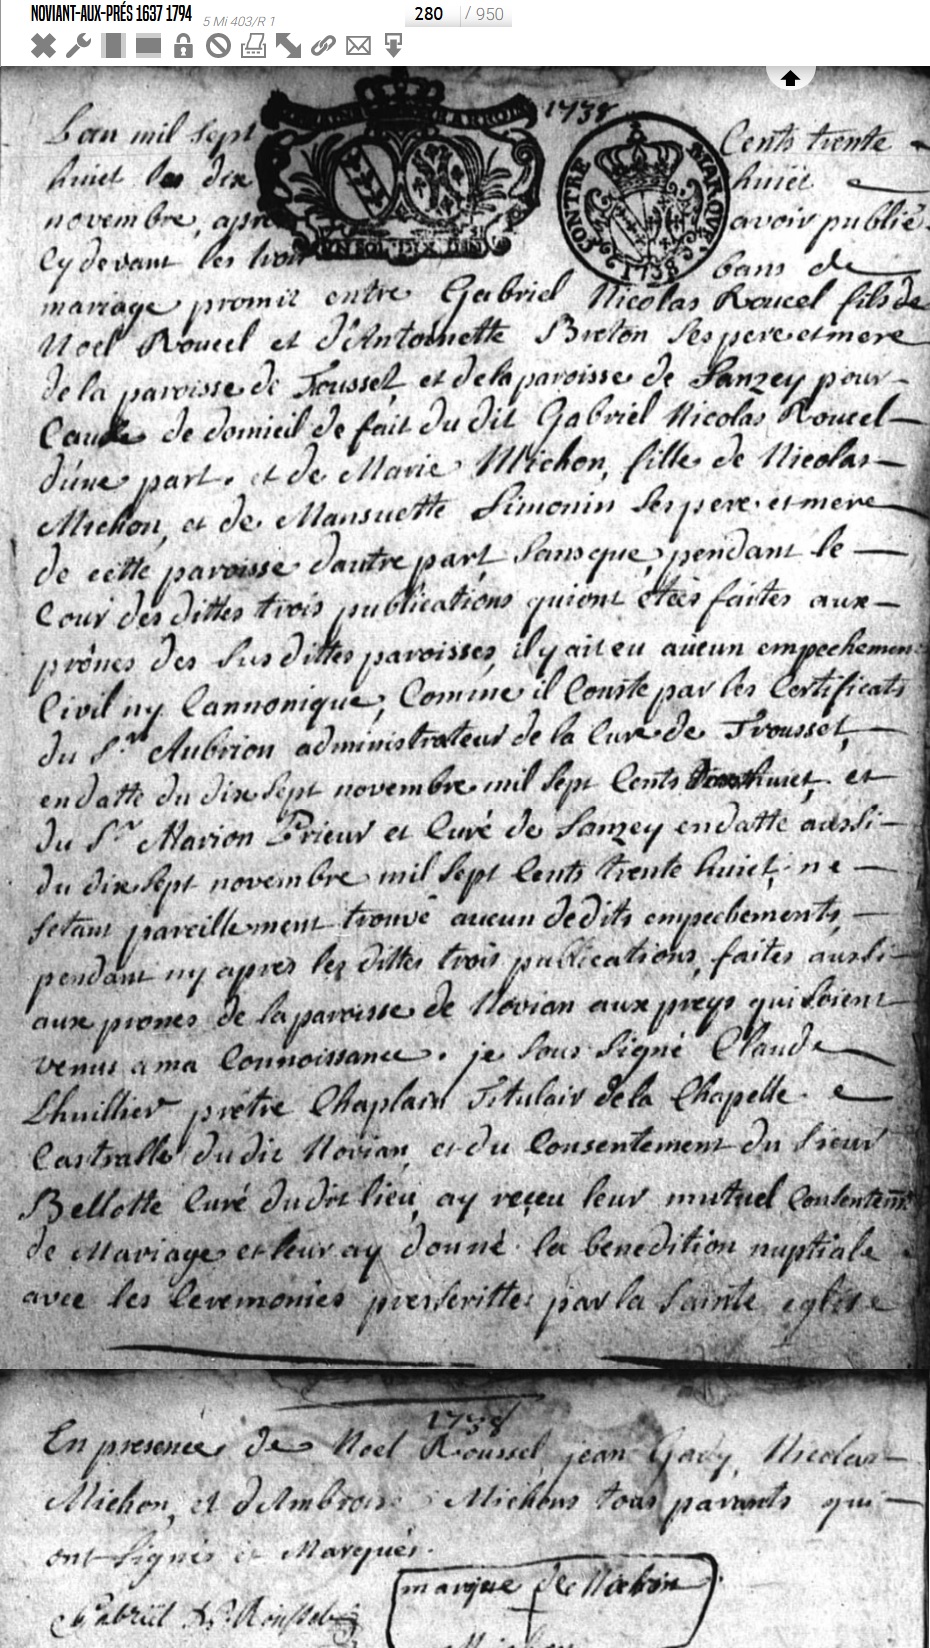 NOVIANT-AUX-PRÉS 1637 1794 5 Mi 403/R 1 280 / 950
1738
Lan mil sept Cents trente
huict les dix huict
novembre, apres avoir publié
cy devant les trois bans de
CONTRE MARQUE 1738
mariage promit entre Gabriel Nicolas Roucel fils de
Noel Roucel et d'Antoinette Breton ses pere et mere
de la paroisse de Toussel, et de la paroisse de Sanzey pour
Cause de domicil de fait du dit Gabriel Nicolas Roucel
d'une part. et de Marie Michon, fille de Nicolas
Michon, et de Mansuette Simonin ses pere et mere
de cette paroisse dautre part, sansque, pendant le
Cour des dittes trois publications quiont étées faites aux
prônes des susdittes paroisses, il y ait eu aucun empechement
Civil ny Cannonique, Comme il Conste par les Certificats
du Sr. Aubrion administrateur de la Cure de Troussel,
en datte du dix sept novembre mil sept Cents huict, et
du Sr. Marion Prieur et Curé de Sanzey en datte aussi
du dix sept novembre mil sept Cents trente huict, ne
setant pareillement trouvé aucun dedits empechements,
pendant ny apres les dittes trois publications, faites aussi
aux prones de la paroisse de Novian aux preys qui soient
venus a ma Connoissance. je sous signé Claude
Lhuillier prêtre Chaplain Titulair de la Chapelle
Castralle du dit Novian, et du Consentement du Sieur
Bellotte Curé du dit lieu, ay reçeu leur mutuel Consentemt
de Mariage et leur ay donné la benedition nuptiale
avec les Ceremonies presscrittes par la Sainte eglise
1738
En presence de Noel Roussel, jean Gady, Nicolas
Michon, et d'Ambrois Michons tous parants qui
ont signés et Marqués.
marque de
Gabriel N. Roussel
Michon